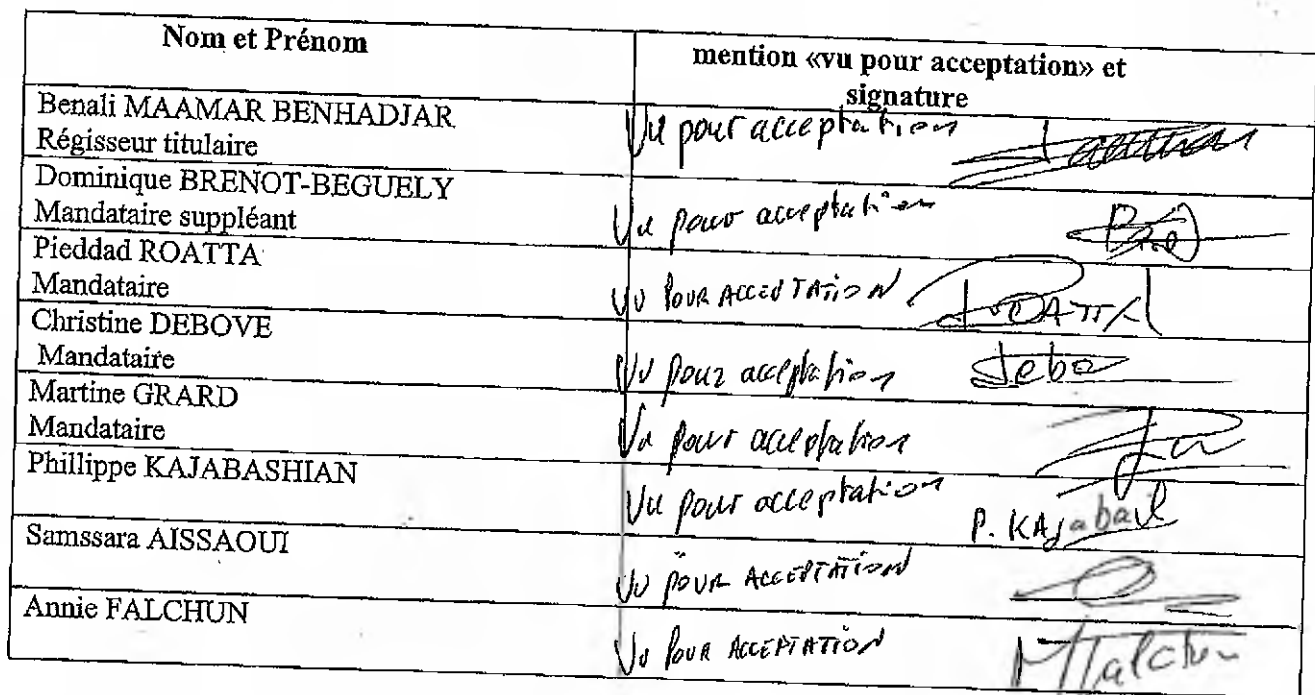 Nom et Prénom
mention «vu pour acceptation» et
signature
Benali MAAMAR BENHADJAR
Régisseur titulaire
Vu pour acceptation
Dominique BRENOT-BEGUELY
Mandataire suppléant
Vu pour acceptation
Pieddad ROATTA
Mandataire
VU POUR ACCEPTATION ROATTA
Christine DEBOVE
Mandataire
Vu pour acceptation Debo
Martine GRARD
Mandataire
Vu pour acceptation
Phillippe KAJABASHIAN
Vu pour acceptation P. KAjabash
Samssara AISSAOUI
VU POUR ACCEPTATION
Annie FALCHUN
VU POUR ACCEPTATION Falchun